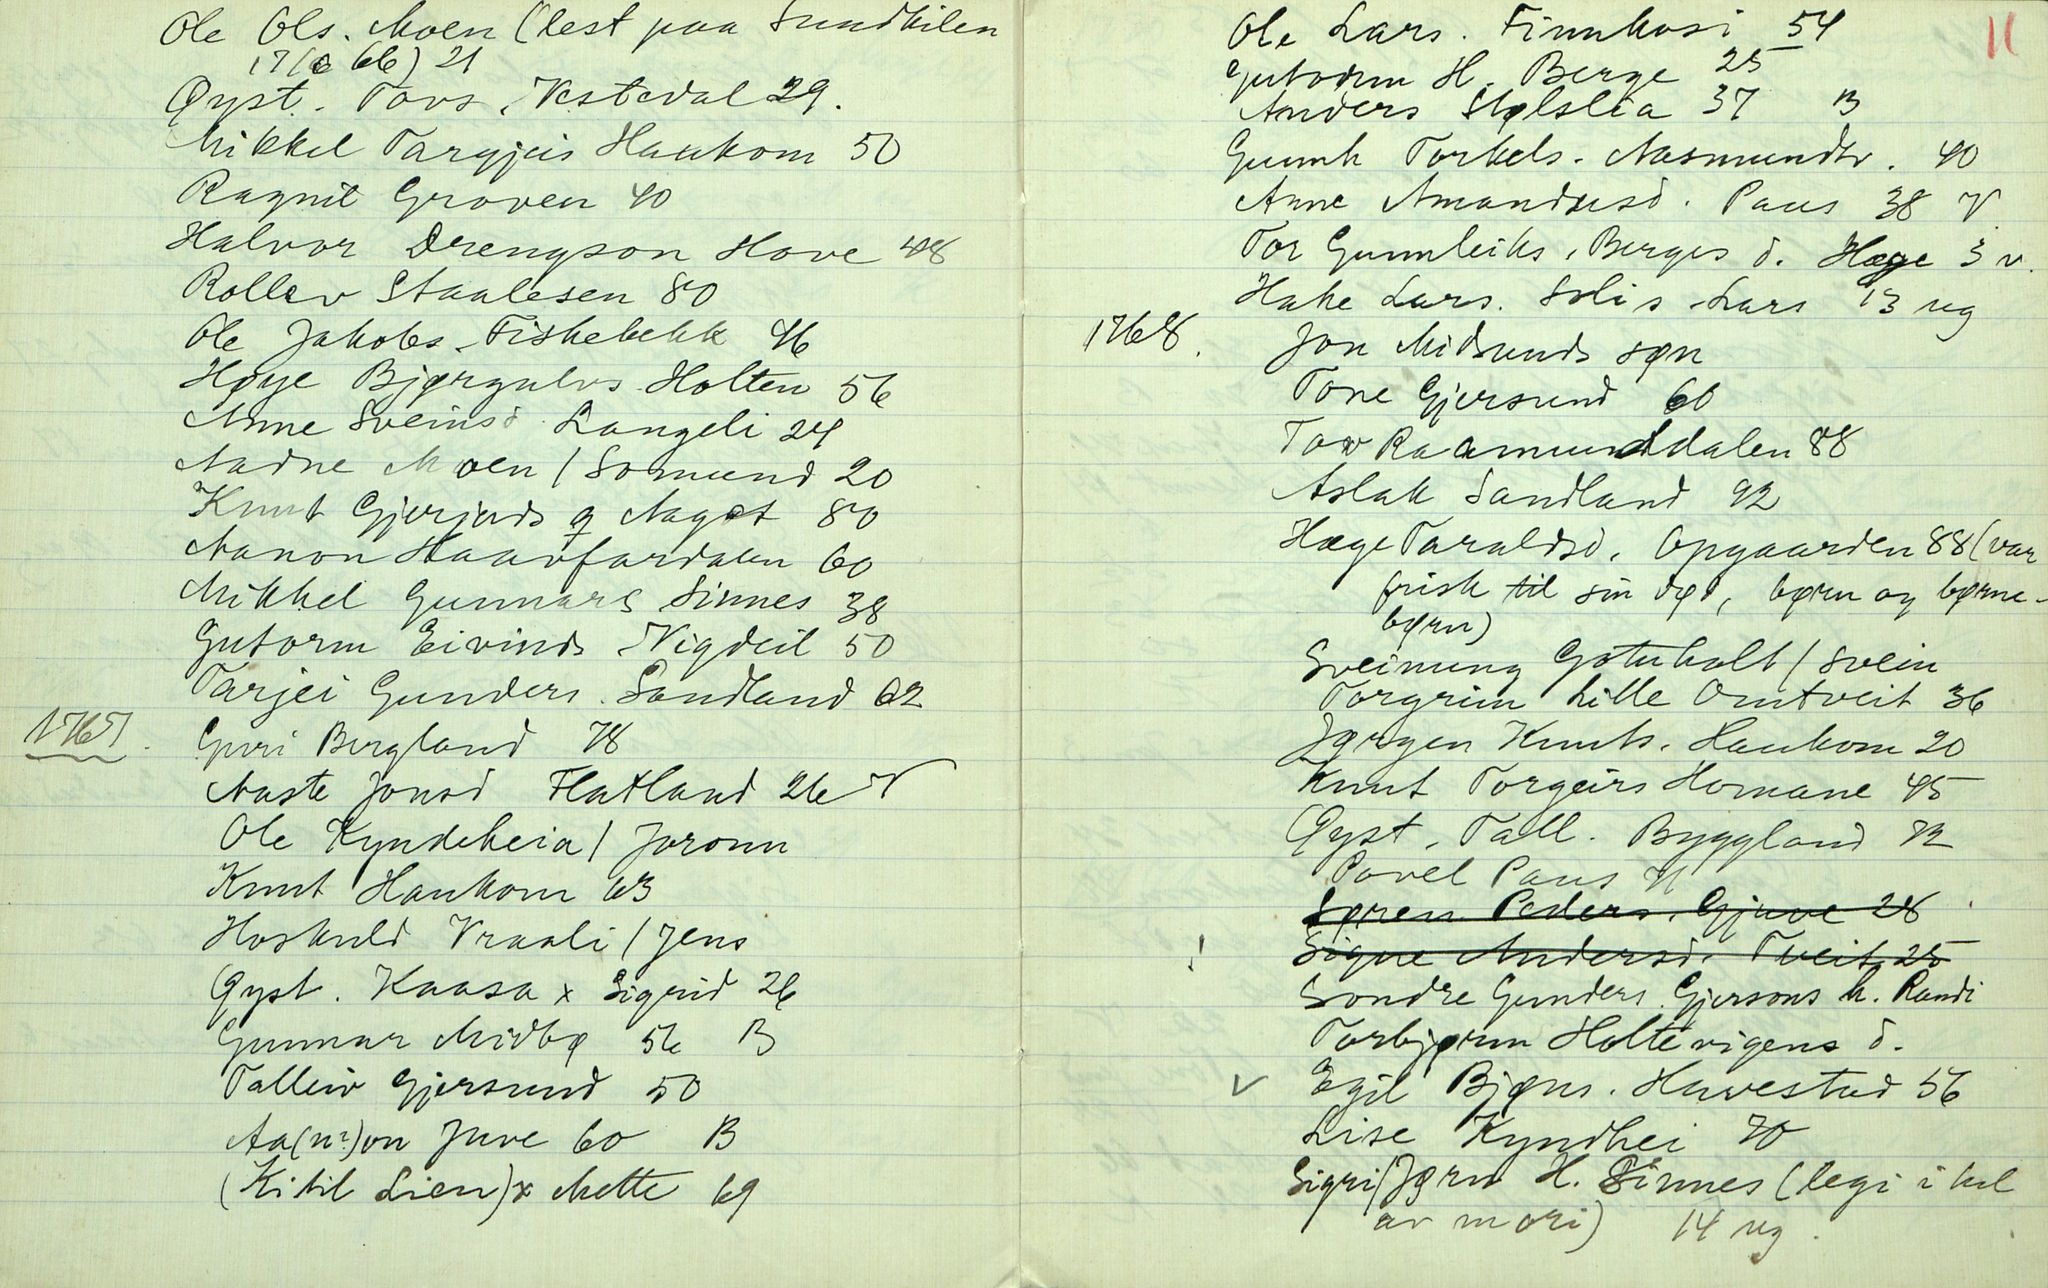 Ole Ols. Moen (lest paa Sundkilen
17/6 66) 21
Øyst. Tovs. Vestedal 29.
Mikkel Targjeis Haukom 50
Ragnil Groven 40
Halvor Drengson Hove 48
Rollev Staalesen 80
Ole Jakobs. Fiskebekk 46
Høye Bjørgulvs Holten 56
Anne Sveinsd Langeli 24
Aadne Moen / Somund 20
Knut Gjerjords g Maget 80
Aanon Haavfardalen 60
Mikkel Gunnars Sinnes 38
Gutorm Eivinds Nigdeil 50
Tarjei Gunders. Sandland 62
1767. Guri Bergland 78
Aaste Jonsd Flatland 26 V
Ole Kyndeheia / Joronn
Knut Haukom 63
Hoskuld Vraali / Jens
Øyst. Kaasa x Sigrid 26
Gunnar Midbø 56 B
Telleiv Gjersund 50
Aa(n?)on Juve 60 B
(Kitil Lien) x Mette 69
11
Ole Lars. Finnkosi 54
Gutorm H. Berge 25
Anders Stølslia 37 B
Gunnh Torkels. Aasmundtv. 40
Anne Amandusd. Paus 38 V
Tor Gunnleiks. Berges d. Hæge 3 v.
Hake Lars. Solis Lars 13 ug
1768. Jon Midsunds søn
Tone Gjersund 60
Tov Raamunddalen 88
Aslak Sandland 92
Hæge Taraldsd. Opgaarden 88 (var
frisk til sin dø, børn og børne-
børn)
Sveinung Gøtuholt / Svein
Torgrim Lille Omtveit 36
Jørgen Knuts. Haukom 20
Knut Torgeirs Homane 45
Øyst. Tall. Byggland 72
Povel Paus 71
Søren Peders. Gjuve 28
! Signe Andersd. Tveit 25
Sondre Gunders Gjersons k. Randi
Torbjørn Holtevigens d.
V Egil Bjøns. Huvestad 56
Lise Kyndhei 70
Sigri / Jørn H. Sinnes (legi i hel
av mori) 14 ug.